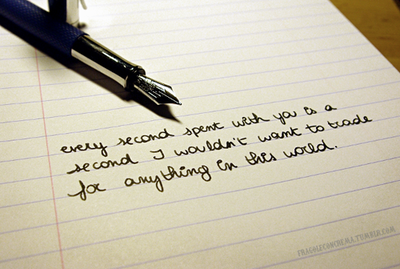 every second spent with you is a
second I wouldn't want to trade
for anything in this world.